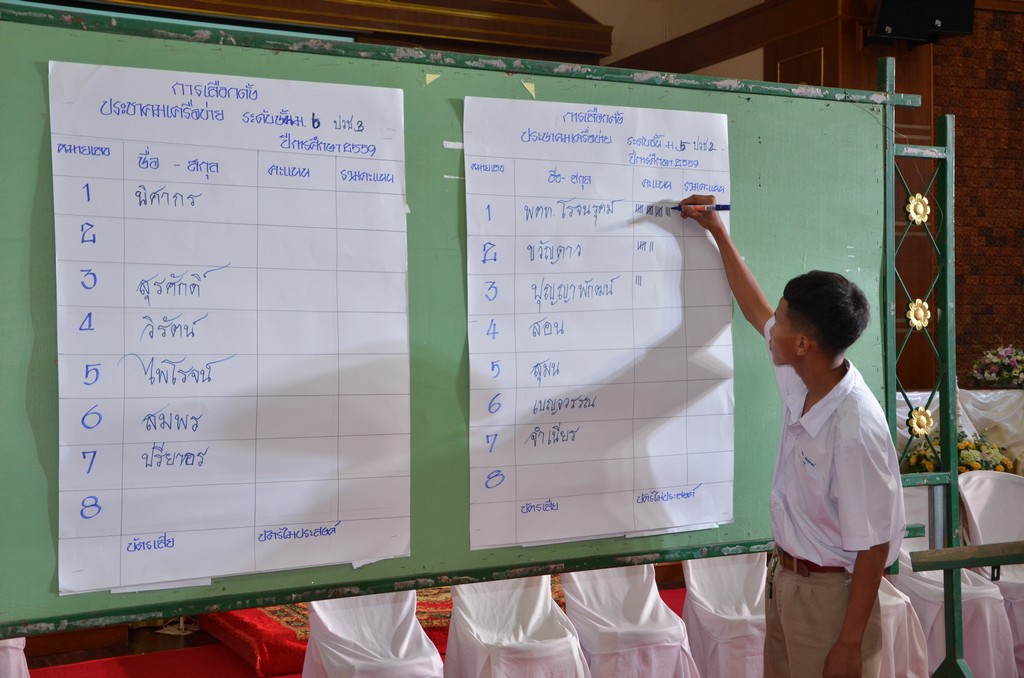 การเลือกตั้ง
ประชาคมเครือข่าย ระดับชั้น ม.6 ปวช.3
ปีการศึกษา 2559
หมายเลข ชื่อ - สกุล คะแนน รวมคะแนน
1 พิศากร
2
3 สุรศักดิ์
4 วิรัตน์
5 ไพโรจน์
6 สมพร
7 ปรียาอร
8
บัตรเสีย บัตรไม่ประสงค์
การเลือกตั้ง
ประชาคมเครือข่าย ระดับชั้น ม.5 ปวช.2
ปีการศึกษา 2559
หมายเลข ชื่อ - สกุล คะแนน รวมคะแนน
1
2 ขวัญดาว
3
4 สอน
5 สุมน
6 เบญจวรรณ
7 จำเนียร
8
บัตรเสีย บัตรไม่ประสงค์